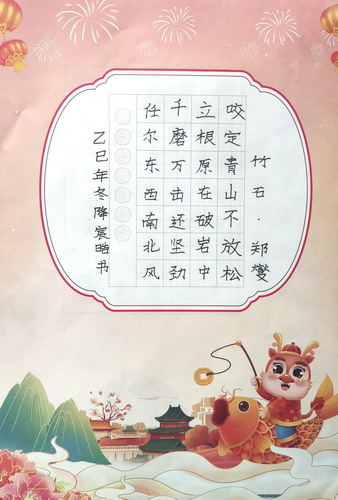 竹石·郑燮
咬定青山不放松
立根原在破岩中
千磨万击还坚劲
任尔东西南北风
乙巳年冬宸书